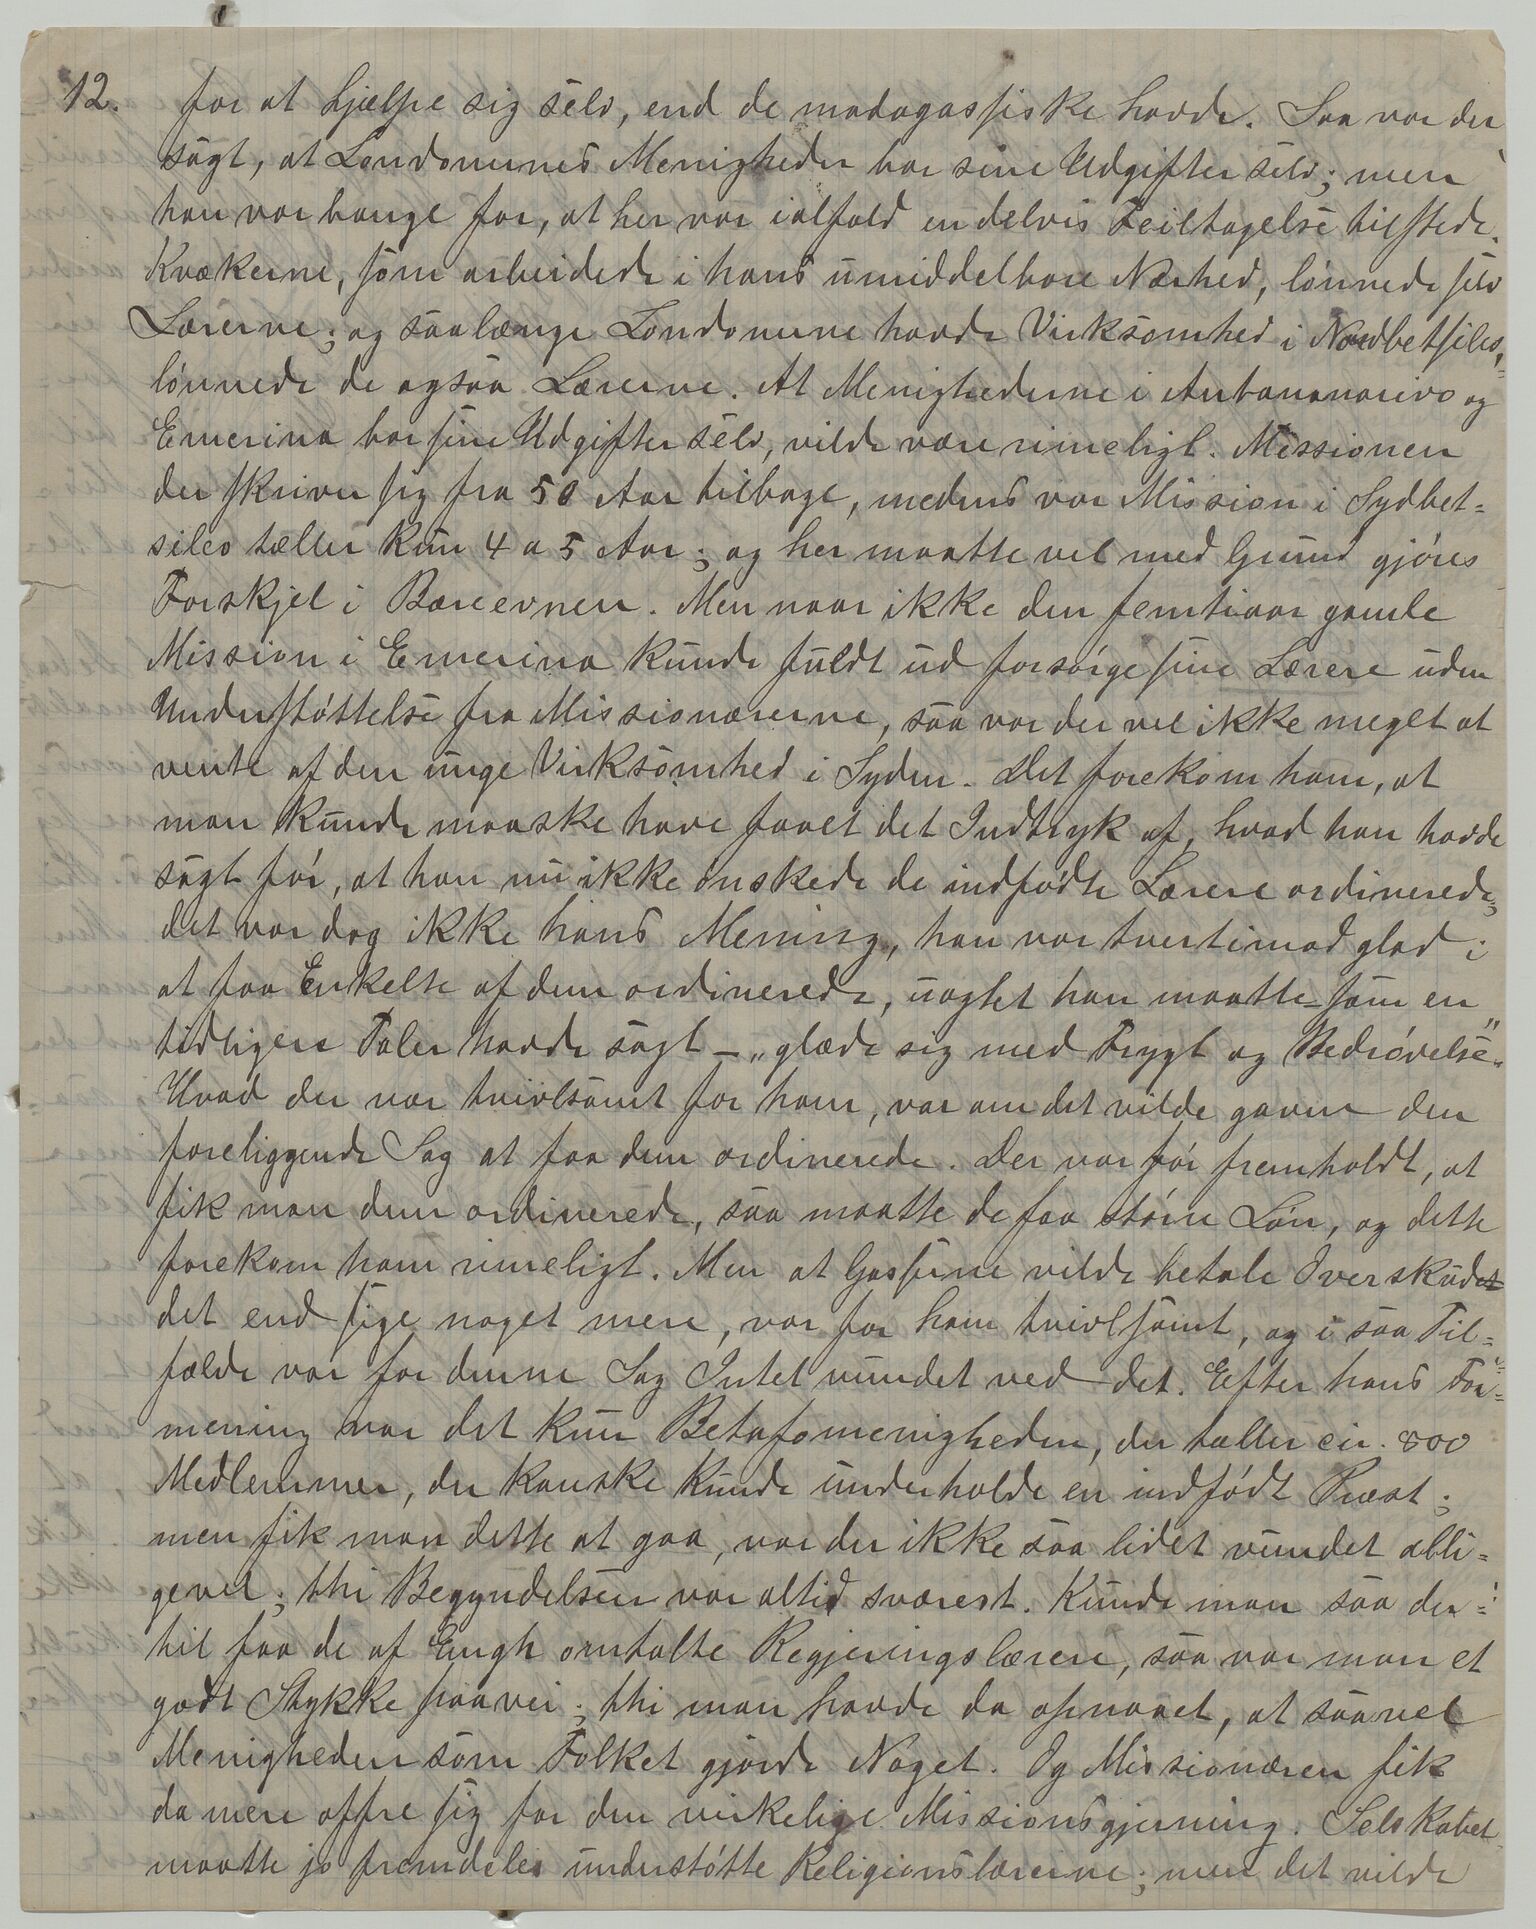 12. for at hjælpe sig selv, end de madagassiske havde. Saa var der
sagt, at Londonernes Menigheder bar sine Udgifter selv; men
han var bange for, at her var ialfald en delvis Feiltagelse tilstede.
Kvækerne, som arbeidede i hans umiddelbare Nærhed, lønnede selv
Lærerne; og saalænge Londonerne havde Virksomhed i Nordbetsileo,
lønnede de ogsaa Lærerne. At Menighederne i Antananarivo og
Emerina bar sine Udgifter selv, vilde være rimeligt. Missionen
der skriver sig fra 50 Aar tilbage, medens vor Mission i Sydbet=
sileo tæller kun 4 a 5 Aar; og her maatte vel med Grund gjøres
Forskjel i Bæreevnen. Men naar ikke den femtiaar gamle
Mission i Emerina kunde fuldt ud forsørge sine Lærere uden
Understøttelse fra Missionærerne, saa var der vel ikke meget at
vente af den unge Virksomhed i Syden. Det forekom ham, at
man kunde maaske have faaet det Indtryk af, hvad han havde
sagt før, at han nu ikke ønskede de indfødte Lærere ordinerede;
det var dog ikke hans Mening, han var tvertimod glad i
at faa Enkelte af dem ordinerede, uagtet han maatte – som en
tidligere Taler havde sagt – „glæde sig med Frygt og Bedrøvelse".
Hvad der var tvivlsomt for ham, var om det vilde gavne den
foreliggende Sag at faa dem ordinerede. Der var før fremholdt, at
fik man dem ordinerede, saa maatte de faa større Løn, og dette
forekom ham rimeligt. Men at Gasserne vilde betale Overskudet
det end sige noget mere, var for ham tvivlsomt, og i saa Til=
fælde var for denne Sag Intet vundet ved det. Efter hans For=
mening var det kun Betafomenigheden, der tæller cir. 800
Medlemmer, der kanske kunde underholde en indfødt Præst;
men fik man dette at gaa, var der ikke saa lidet vundet alli=
gevel; thi Begyndelsen var altid sværest. Kunde man saa der=
til faa de af Engh omtalte Regjeringslærere, saa var man et
godt Stykke paavei; thi man havde da opnaaet, at saavel
Menigheden som Folket gjorde Noget. Og Missionæren fik
da mere offre sig for den virkelige Missionsgjerning. Selskabet
maatte jo fremdeles understøtte Religionslærerne; men det vilde